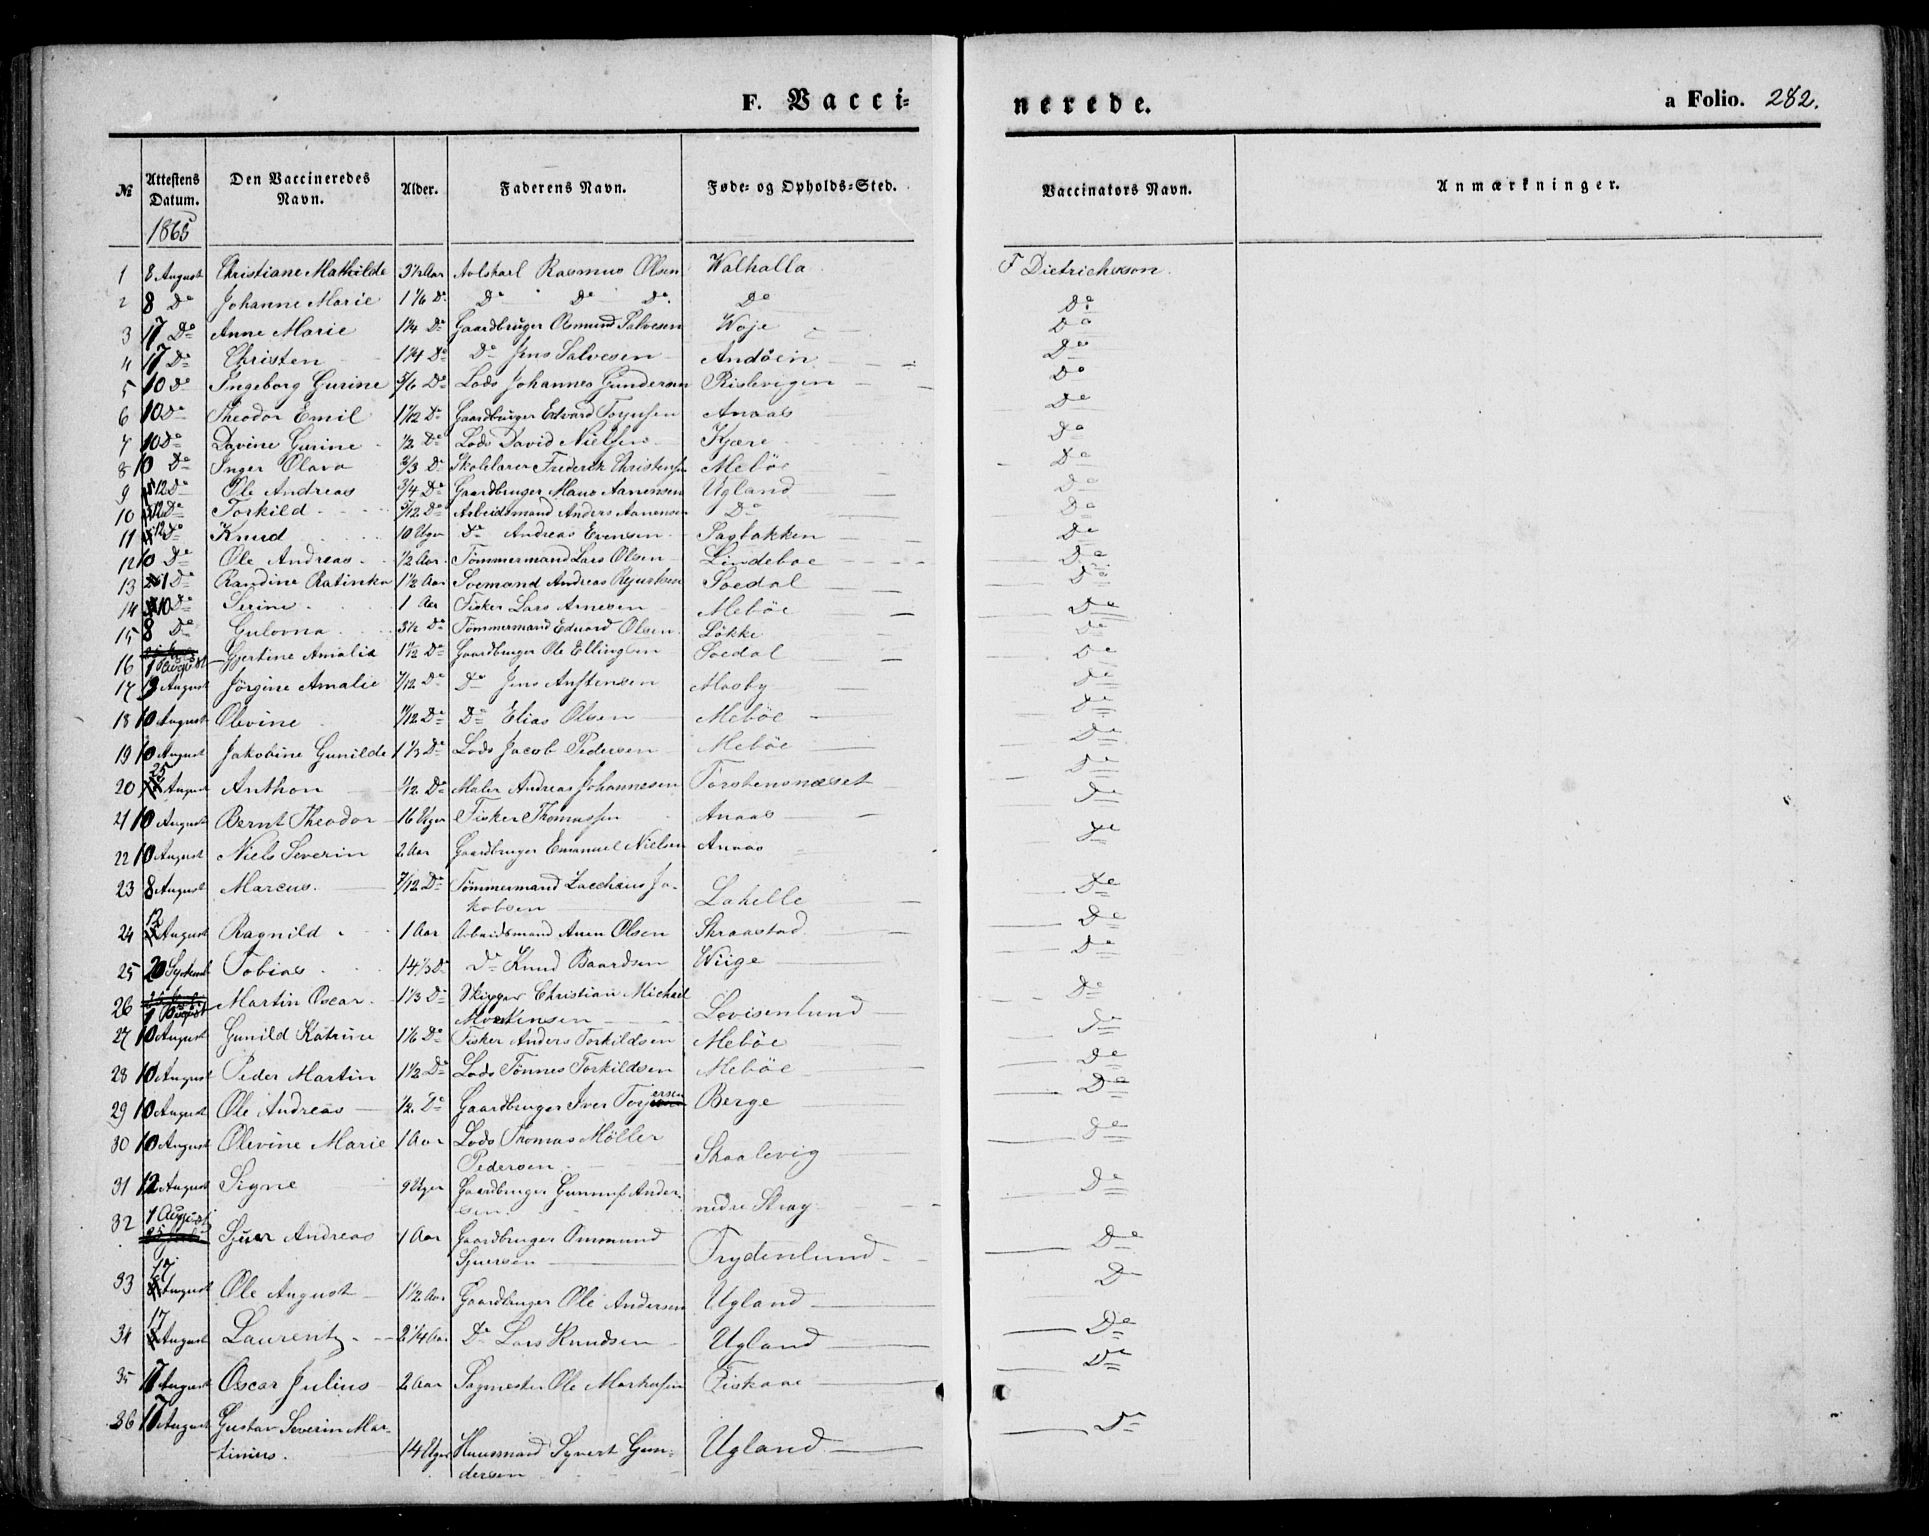 F. Vacci-
nerede.
a Folio. 282.
№ Attestens Datum. Den Vaccineredes Navn. Alder. Faderens Navn. Føde- og Opholds-Sted. Vaccinators Navn. Anmærkninger.
1865
1 8 August Christiane Mathilde 3½ Aar Rasmus Olsen Walhalla F Dietrichson
2 8 Do Johanne Marie 1 1/6 Do Do Do Do Do Do
3 17 Do Anne Marie 1¼ Do Gaardbruger Osmund Salvesen Woje Do
4 17 Do Christen 1¼ Do Do Jens Salvesen Andöen Do
5 10 Do Ingeborg Gurine 5/6 Do Lods Johannes Gundersen Rislevigen Do
6 10 Do Theodor Emil 1 1/12 Do Gaardbruger Edvard Anaas Do
7 10 Do Davine Gurine ½ Do Lods David Nielsen Kjære Do
8 10 Do Inger Olava 2/3 Do Skolelærer Frederik Christensen Meböe Do
9 12 Do Ole Andreas 3/4 Do Gaardbruger Aanensen Ugland Do
10 12 Do Torkild 5/12 Do Arbeidsmand Anders Aanensen Do Do
11 12 Do Knud 10 Uger Do Andreas Evensen Sagbakken Do
12 10 Do Ole Andreas ½ Aar Tömmermand Lars Olsen Lindeboe Do
13 1 Do Randine Ratinka 1½ Aar Soemand Andreas Soedal Do
14 10 Do Serine 1 Aar Fisker Lars Arnesen Meböe Do
15 8 Do Gulovna 3½ Do Tömmermand Edvard Olsen Lökke Do
16 1 August Gjertine Amalia 1 1/12 Do Gaardbruger Ole Ellingsen Soedal Do
17 3 August Jörgine Amalie 7/12 Do Do Jens Anstensen Mosby Do
18 10 August Olevine 11/12 Do Do Elias Olsen Meböe Do
19 10 August Jakobine Gunilde 1 1/3 Do Lods Jacob Pedersen Meböe Do
20 25 August Anthon 1/12 Do Maler Andreas Johannesen Torstensnæset Do
21 10 August Bernt Theodor 16 Uger Fisker Thomassen Anaas Do
22 10 August Niels Severin 2 Aar Gaardbruger Emanuel Nielsen Anaas Do
23 8 August Marcus 7/12 Do Tömmermand Zacchäus Ja-
kobsen Lahelle Do
24 12 August Ragnild 1 Aar Arbeidsmand Anen Olsen Skraastad Do
25 20 Septemb Tobias 14 1/3 Do Do Knud Baardsen Wiige Do
26 1 August Martin Oscar 1 1/3 Do Skipper Christian Michael
Mortensen Lovisenlund Do
27 10 August Gunild Katrine 1 1/6 Do Fisker Anders Torkildsen Meböe Do
28 10 August Peder Martin 1½ Do Lods Tönnes Torkildsen Meböe Do
29 10 August Ole Andreas ½ Do Gaardbruger Iver Torjersen Berge Do
30 10 August Olevine Marie 1 Aar Lods Thomas Möller
Pedersen Skaalevig Do
31 12 August Signe 9 Uger Gaardbruger Gunnuf Ander-
sen nedre Strag Do
32 1 August Sjuer Andreas 1 Aar Gaardbruger Ommund
Sjuersen Frydenlund Do
33 17 August Ole August 1½ Aar Gaardbruger Ole Andersen Ugland Do
34 17 August Laurentz 2 1/4 Aar Do Lars Knudsen Ugland Do
35 17 August Oscar Julius 2 Aar Sagmester Ole Markussen Fiskaae Do
36 17 August Gustav Severin Mar-
tinius 14 Uger Huusmand Syvert Gun-
dersen Ugland Do